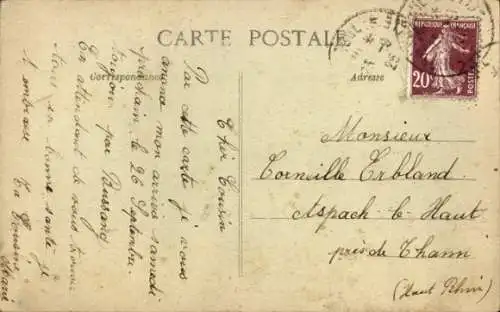 CARTE POSTALE
Correspondance
Adresse
RÉPUBLIQUE FRANÇAISE
20c
POSTES
Cher Cousin
Par cette carte je vous
anonce mon arrivé samedi
prochain le 26 Septembre
toujours par Bussang
En attendant de vous trouver
tous en bonne santé je
t embrasse Ta Cousine
Marie
Monsieur
Corneille Erbland
Aspach-le-Haut
près de Thann
(Haut Rhin)